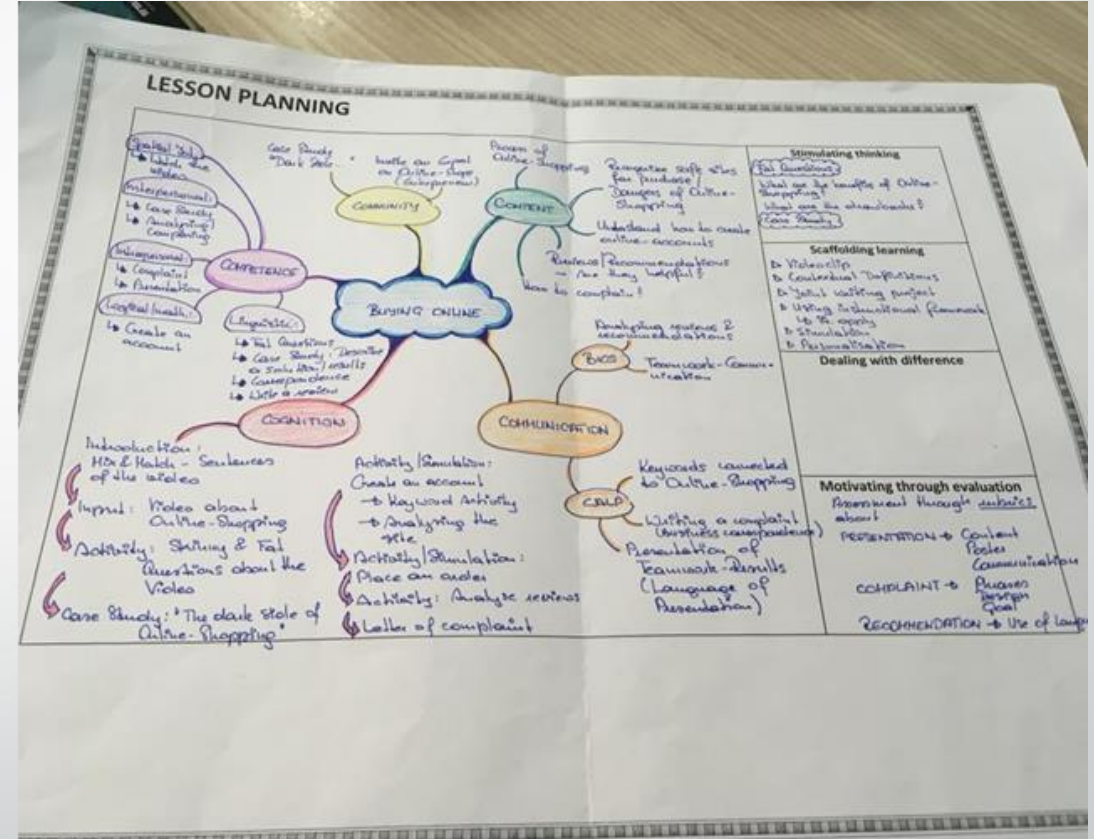 LESSON PLANNING
BUYING ONLINE
COMMUNITY
Case Study
"Dark Side..."
Invite an Expert
on Online-Shops
(Entrepreneur)
CONTENT
Process of
Online-Shopping
Recognise safe sites
for purchase/
Dangers of Online-
Shopping
Understand how to create
online-accounts
Reviews/Recommendations
→ Are they helpful?
How to complain?
COMPETENCE
↳ Watch the
video
Interpersonal:
↳ Case Study
↳ Analysing/
Comparing
Intrapersonal:
↳ Complaint
↳ Presentation
Logical/Math.:
↳ Create an
account
Linguistic:
↳ Fat Questions
↳ Case Study: Describe
a solution/results
↳ Correspondence
↳ Write a review
COGNITION
Introduction:
Mix & Match - Sentences
of the video
Input: Video about
Online-Shopping
Activity: Skinny & Fat
Questions about the
Video
Case Study: "The dark side of
Online-Shopping"
Activity/Simulation:
Create an account
→ Keyword Activity
→ Analysing the
site
Activity/Simulation:
Place an order
Activity: Analyse reviews
Letter of complaint
COMMUNICATION
BICS
Analysing reviews &
recommendations
Teamwork-Commu-
nication
CALP
Keywords connected
to Online-Shopping
Writing a complaint
(business correspondence)
Presentation of
Teamwork-Results
(Language of
Presentation)
Stimulating thinking
Fat Questions:
What are the benefits of Online-
Shopping?
What are the drawbacks?
Case Study
Scaffolding learning
Videoclip
Contextual Definitions
Joint writing project
Using instructional framework
↳ to apply
Simulation
Personalisation
Dealing with difference
Motivating through evaluation
Assessment through rubrics
about
PRESENTATION → Content
Poster
Communication
COMPLAINT → Phrases
Design
Goal
RECOMMENDATION → Use of